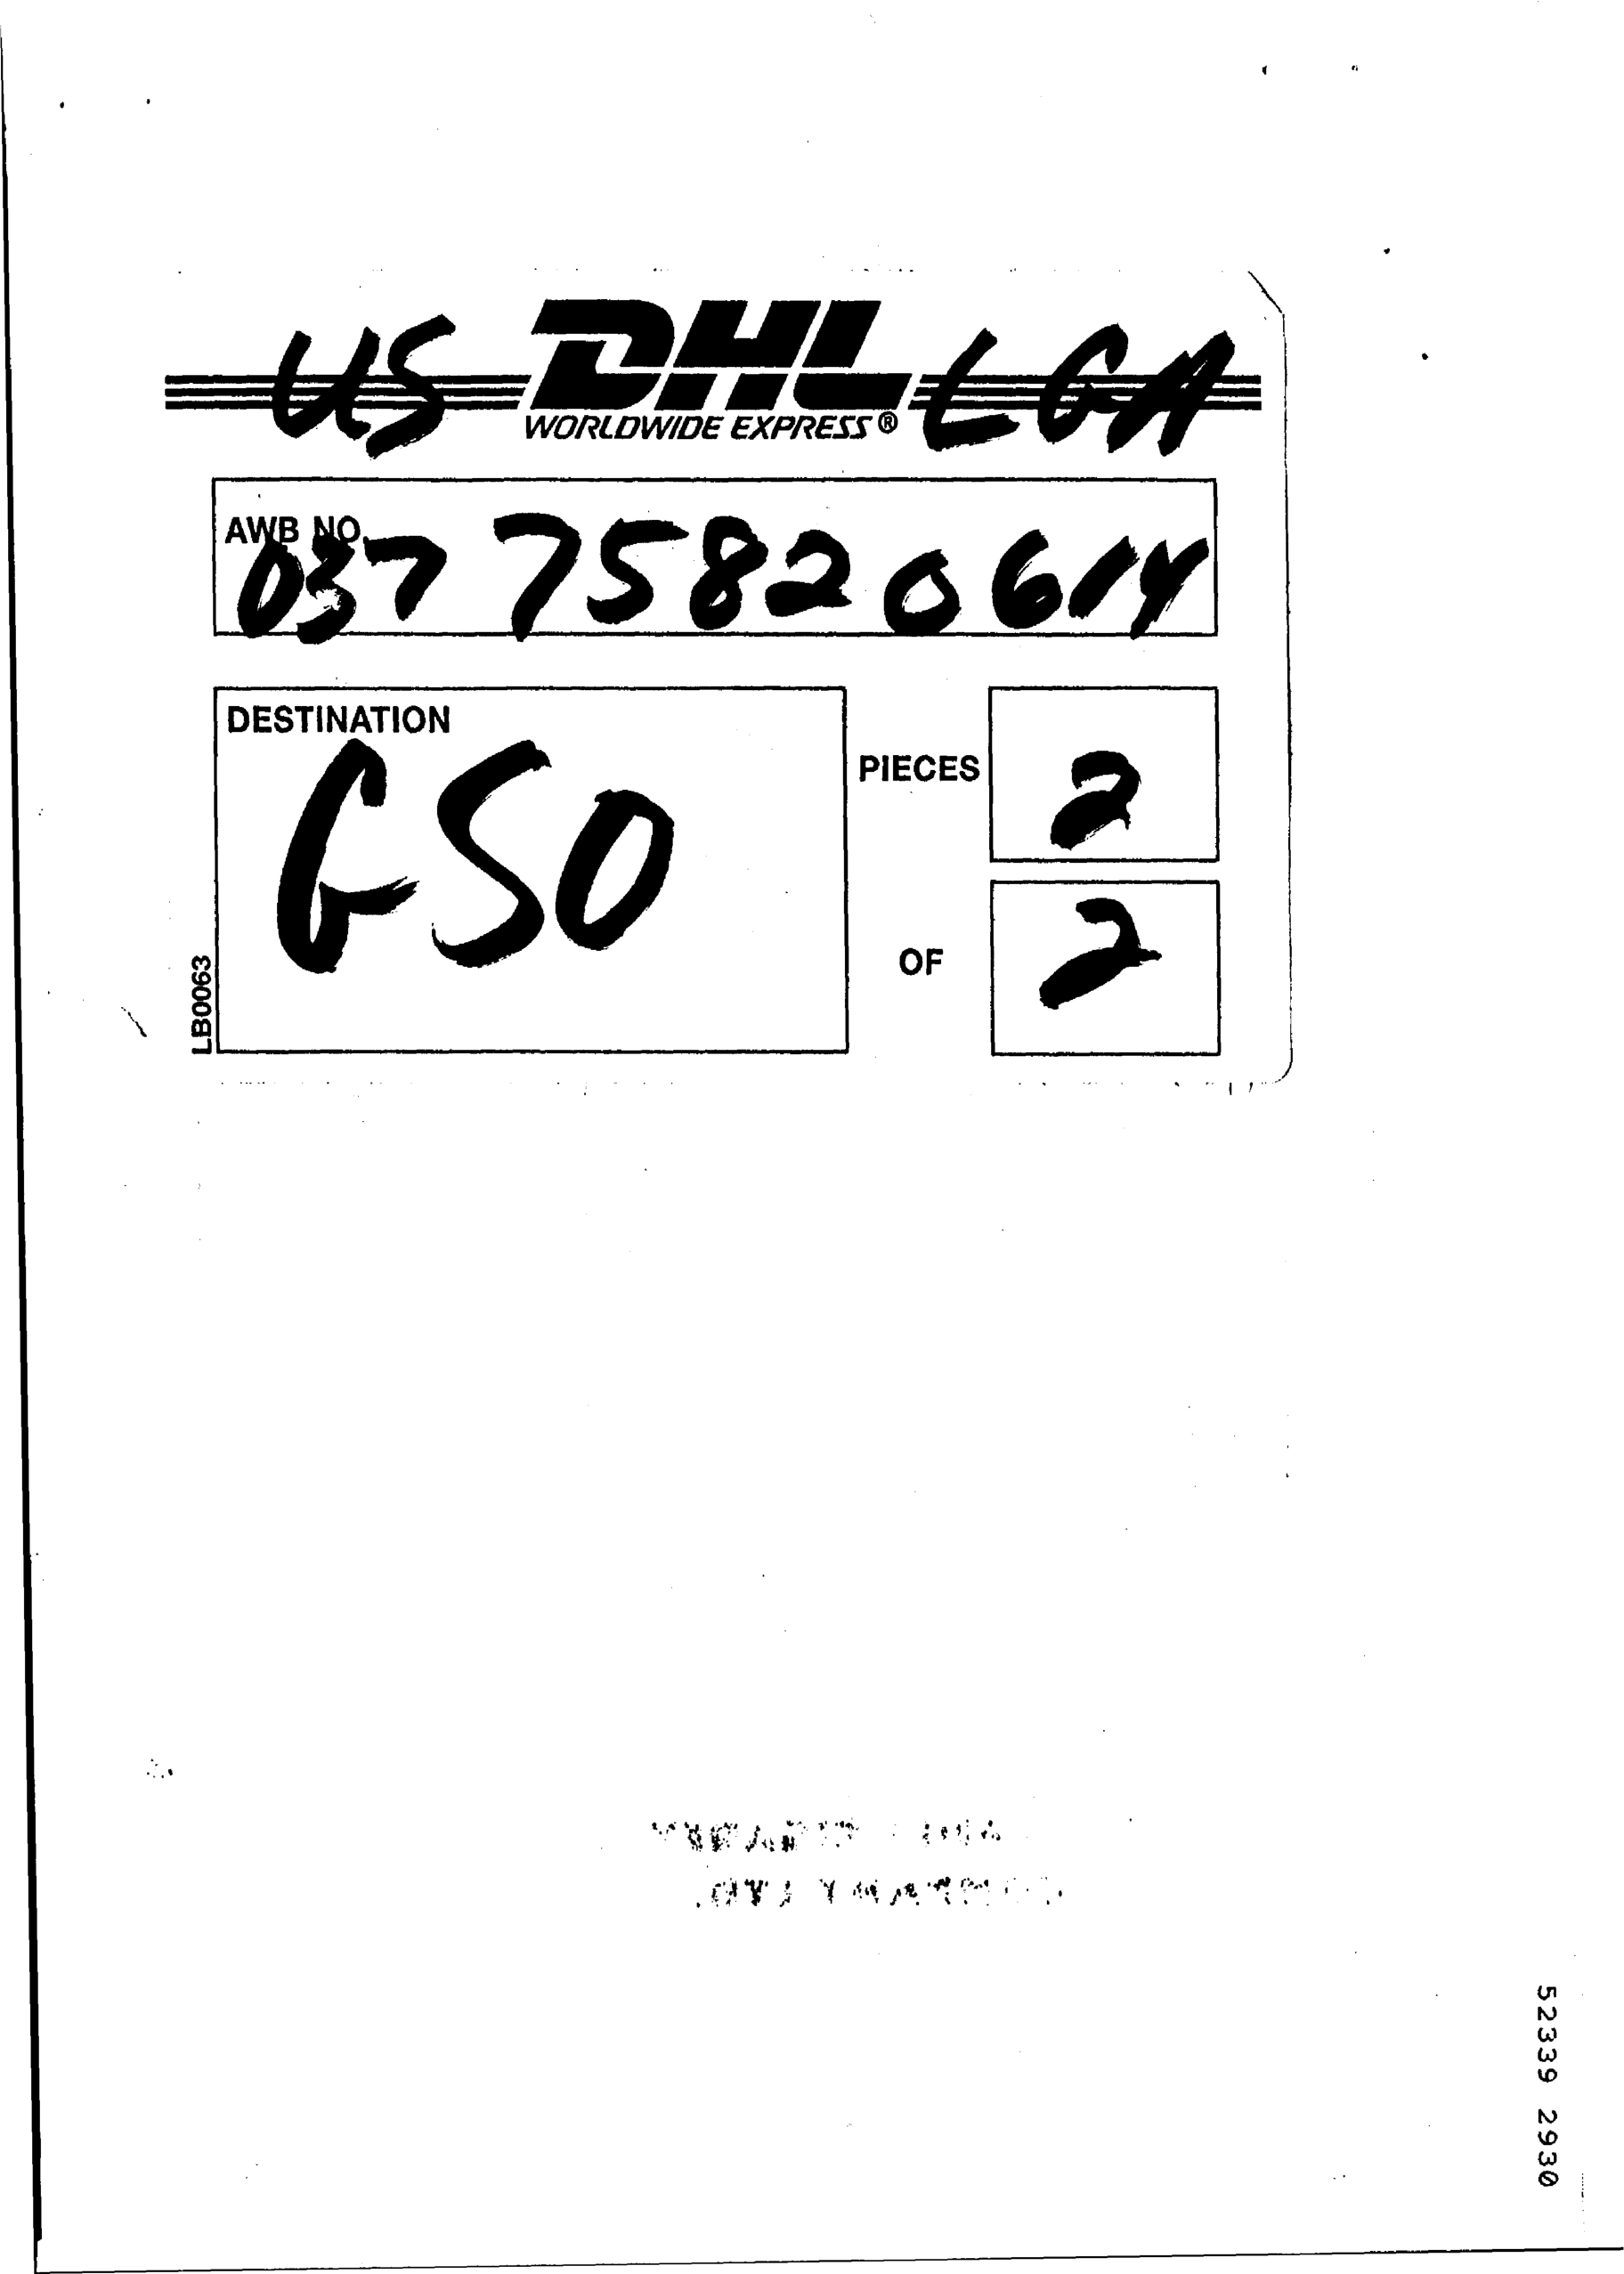 US DHL LGA
WORLDWIDE EXPRESS®
AWB NO
037 75820614
DESTINATION
GSO
PIECES
2
OF
2
LB0063
52339 2930